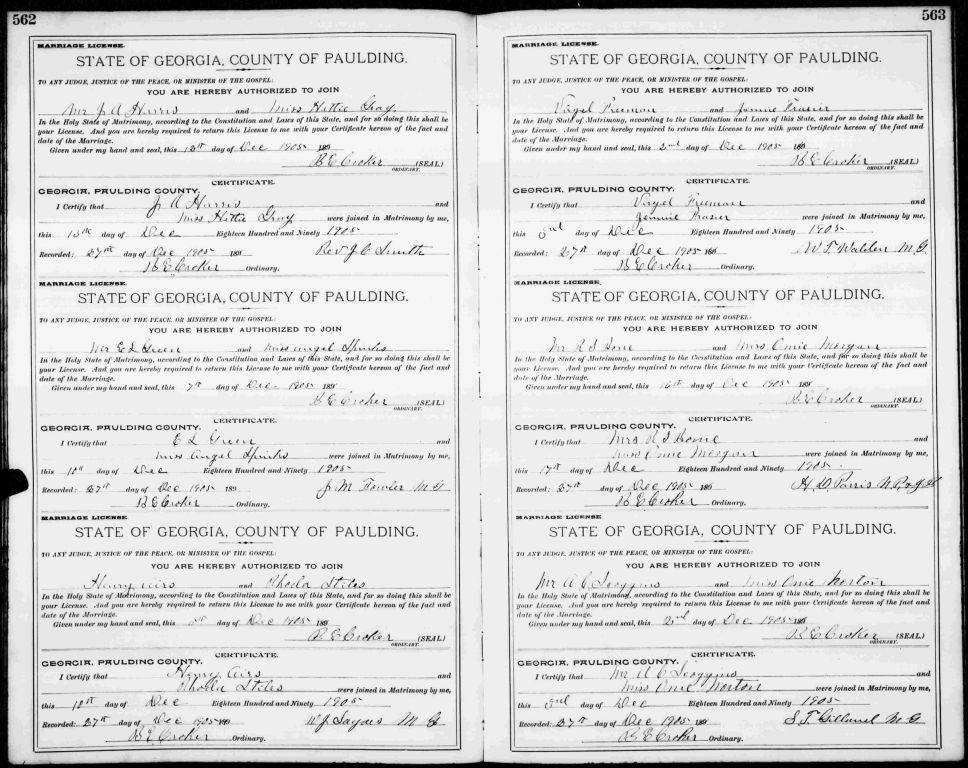 562
MARRIAGE LICENSE.
STATE OF GEORGIA, COUNTY OF PAULDING.
TO ANY JUDGE, JUSTICE OF THE PEACE, OR MINISTER OF THE GOSPEL:
YOU ARE HEREBY AUTHORIZED TO JOIN
Mr J A Harris and Miss Hettie Gray
In the Holy State of Matrimony, according to the Constitution and Laws of this State, and for so doing this shall be
your License. And you are hereby required to return this License to me with your Certificate hereon of the fact and
date of the Marriage.
Given under my hand and seal, this 13th day of Dec 1905 189
B E Croker (SEAL)
ORDINARY.
CERTIFICATE.
GEORGIA, PAULDING COUNTY.
I Certify that J A Harris and
Miss Hettie Gray were joined in Matrimony by me,
this 13th day of Dec Eighteen Hundred and Ninety 1905
Recorded: 27th day of Dec 1905 189 Rev J C Smith
B E Croker Ordinary.
MARRIAGE LICENSE.
STATE OF GEORGIA, COUNTY OF PAULDING.
TO ANY JUDGE, JUSTICE OF THE PEACE, OR MINISTER OF THE GOSPEL:
YOU ARE HEREBY AUTHORIZED TO JOIN
Mr E L Green and Miss Angel Spinks
In the Holy State of Matrimony, according to the Constitution and Laws of this State, and for so doing this shall be
your License. And you are hereby required to return this License to me with your Certificate hereon of the fact and
date of the Marriage.
Given under my hand and seal, this 7th day of Dec 1905 189
B E Croker (SEAL)
ORDINARY.
CERTIFICATE.
GEORGIA, PAULDING COUNTY.
I Certify that E L Green and
Miss Angel Spinks were joined in Matrimony by me,
this 10th day of Dec Eighteen Hundred and Ninety 1905
Recorded: 27th day of Dec 1905 189 J M Fowler M G
B E Croker Ordinary.
MARRIAGE LICENSE.
STATE OF GEORGIA, COUNTY OF PAULDING.
TO ANY JUDGE, JUSTICE OF THE PEACE, OR MINISTER OF THE GOSPEL:
YOU ARE HEREBY AUTHORIZED TO JOIN
Henry Airs and Rhoda Stiles
In the Holy State of Matrimony, according to the Constitution and Laws of this State, and for so doing this shall be
your License. And you are hereby required to return this License to me with your Certificate hereon of the fact and
date of the Marriage.
Given under my hand and seal, this day of Dec 1905 189
B E Croker (SEAL)
ORDINARY.
CERTIFICATE.
GEORGIA, PAULDING COUNTY.
I Certify that Henry Airs and
Rhoda Stiles were joined in Matrimony by me,
this 12th day of Dec Eighteen Hundred and Ninety 1905
Recorded: 27th day of Dec 1905 189 W J M G
B E Croker Ordinary.
563
MARRIAGE LICENSE.
STATE OF GEORGIA, COUNTY OF PAULDING.
TO ANY JUDGE, JUSTICE OF THE PEACE, OR MINISTER OF THE GOSPEL:
YOU ARE HEREBY AUTHORIZED TO JOIN
Virgel Freeman and Jennie Frasier
In the Holy State of Matrimony, according to the Constitution and Laws of this State, and for so doing this shall be
your License. And you are hereby required to return this License to me with your Certificate hereon of the fact and
date of the Marriage.
Given under my hand and seal, this 2nd day of Dec 1905 189
B E Croker (SEAL)
ORDINARY.
CERTIFICATE.
GEORGIA, PAULDING COUNTY.
I Certify that Virgel Freeman and
Jennie Frasier were joined in Matrimony by me,
this 3rd day of Dec Eighteen Hundred and Ninety 1905
Recorded: 27th day of Dec 1905 189 W T Walden M. G.
B E Croker Ordinary.
MARRIAGE LICENSE.
STATE OF GEORGIA, COUNTY OF PAULDING.
TO ANY JUDGE, JUSTICE OF THE PEACE, OR MINISTER OF THE GOSPEL:
YOU ARE HEREBY AUTHORIZED TO JOIN
Mr R S and Mrs Onie Morgan
In the Holy State of Matrimony, according to the Constitution and Laws of this State, and for so doing this shall be
your License. And you are hereby required to return this License to me with your Certificate hereon of the fact and
date of the Marriage.
Given under my hand and seal, this 16th day of Dec 1905 189
B E Croker (SEAL)
ORDINARY.
CERTIFICATE.
GEORGIA, PAULDING COUNTY.
I Certify that Mrs R S and
Miss Onie Morgan were joined in Matrimony by me,
this 17th day of Dec Eighteen Hundred and Ninety 1905
Recorded: 27th day of Dec 1905 189 H D Parris
B E Croker Ordinary.
MARRIAGE LICENSE.
STATE OF GEORGIA, COUNTY OF PAULDING.
TO ANY JUDGE, JUSTICE OF THE PEACE, OR MINISTER OF THE GOSPEL:
YOU ARE HEREBY AUTHORIZED TO JOIN
Mr A C Scoggins and Miss Onie Norton
In the Holy State of Matrimony, according to the Constitution and Laws of this State, and for so doing this shall be
your License. And you are hereby required to return this License to me with your Certificate hereon of the fact and
date of the Marriage.
Given under my hand and seal, this 2nd day of Dec 1905 189
B E Croker (SEAL)
ORDINARY.
CERTIFICATE.
GEORGIA, PAULDING COUNTY.
I Certify that Mr A C Scoggins and
Miss Onie Norton were joined in Matrimony by me,
this 3rd day of Dec Eighteen Hundred and Ninety 1905
Recorded: 27th day of Dec 1905 189 S T M G
B E Croker Ordinary.